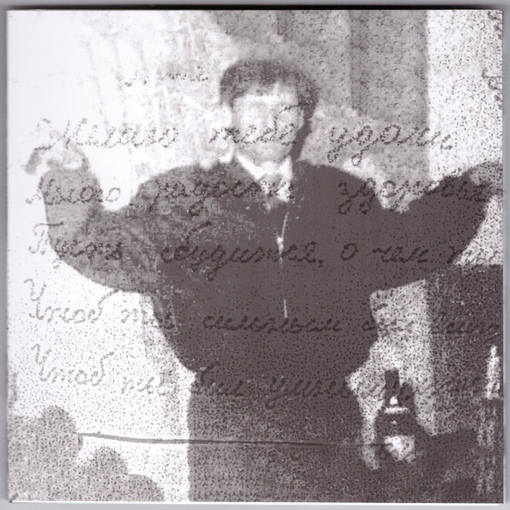 Желаю тебе удачи,
Много радости здоровья
Пусть сбудится, о чем
Чтоб ты сильным был
Чтоб ты был умным